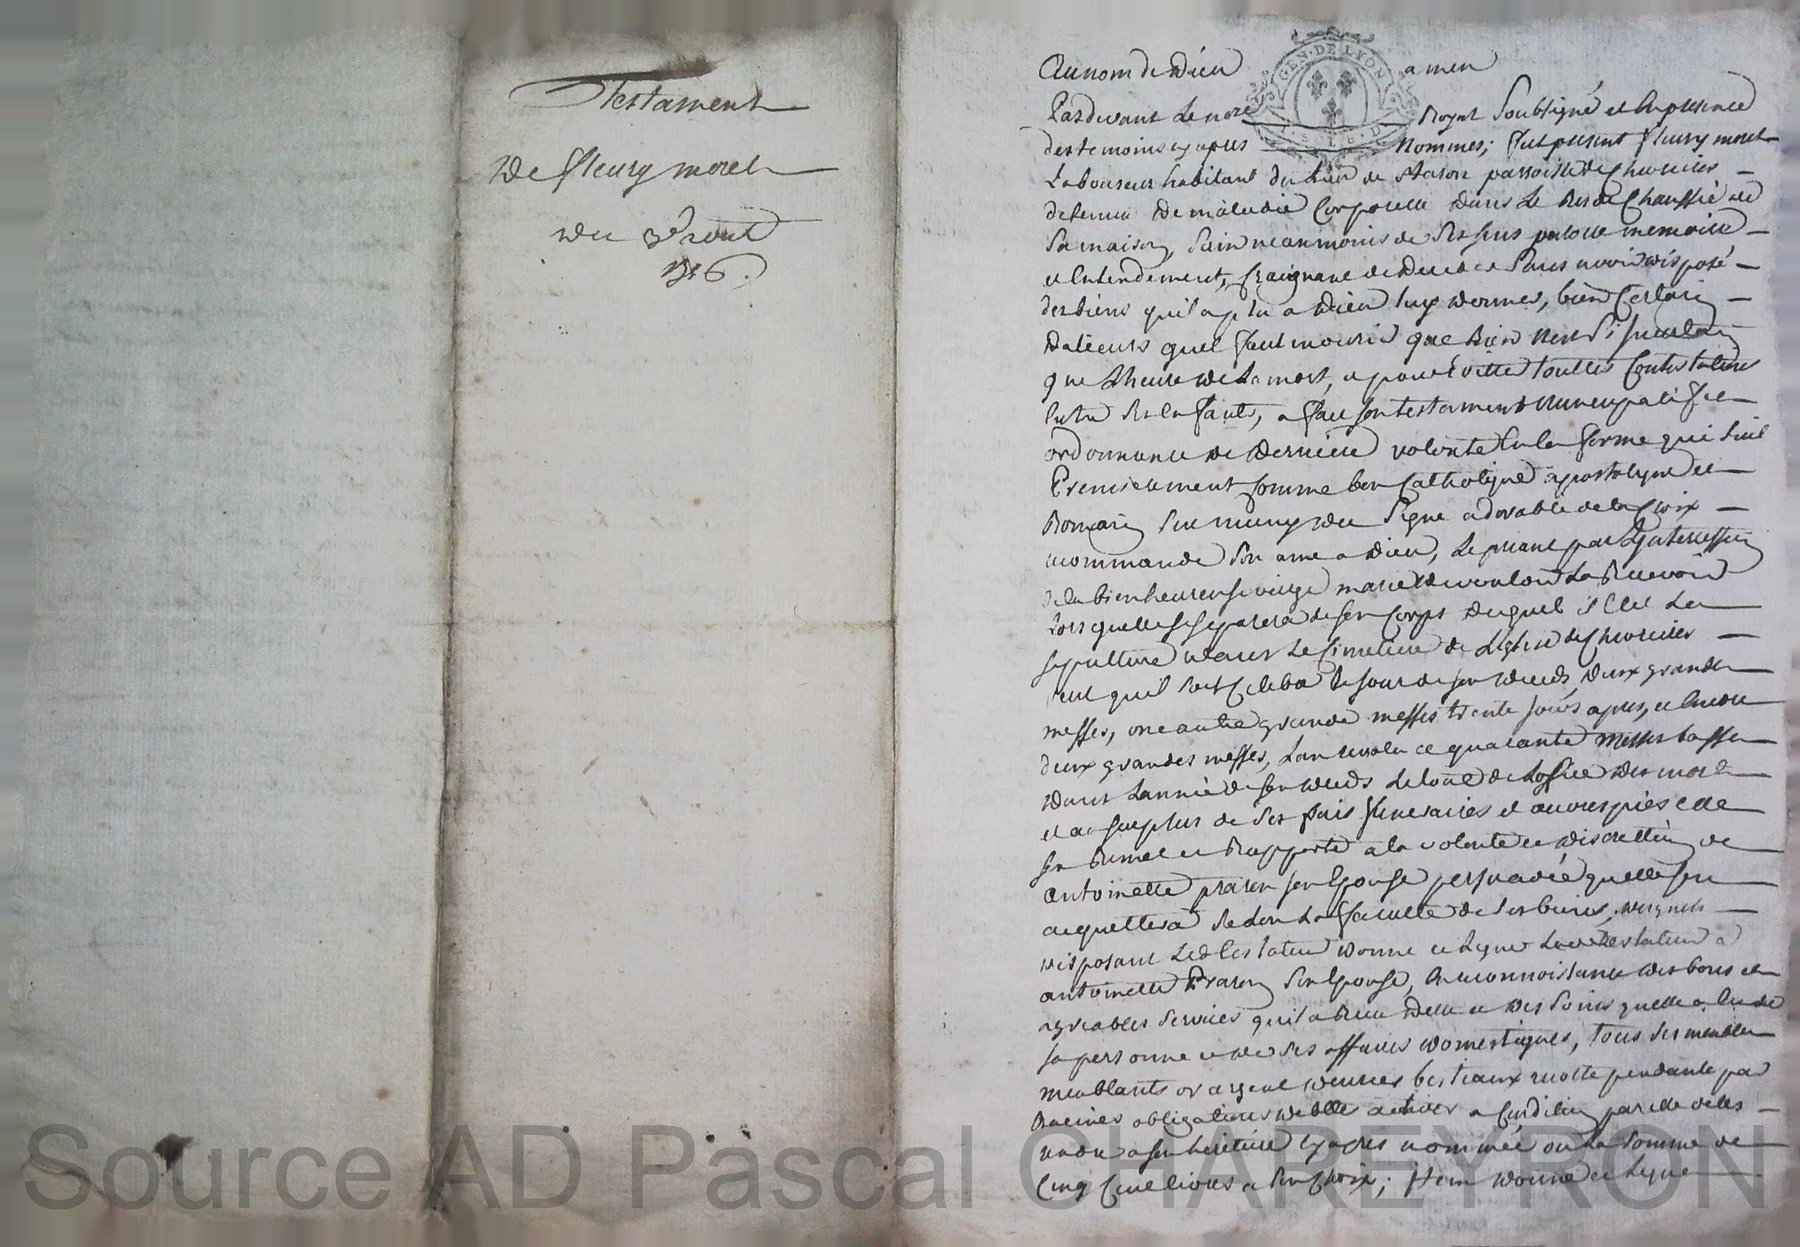 Testament
De fleury morel
Du 3e aout
Au nom de Dieu amen
GEN·DE LYON
Pardevant Le nore Royal Soubsigné et En presence
des temoins cy apres Nommes; fut present fleury morel
Laboureur habitant du lieu de parroisse de
detenu De maladie Corporelle Dans Le Res de Chaussée de
Sa maison, Sain neanmoins de Ses sens parolle memoire
et Entendement, Craignant de deceder Sans avoir disposé
des biens qu'il a plu a Dieu luy donner, bien Certain
Dalieurs quel faut mourir que Rien N'est Si incertain
que L'heure de La mort, et pour Eviter touttes Contestations
Entre Ses Enfants, a fait son testament Nuncupatif et
ordonnance de Derniere volonté En la forme qui Suit
Premierement Comme bon Catholique apostolique et
Romain S'est muny du Signe adorable de la Croix
recommande Son ame a Dieu, Le priant par L'Intercession
de la bienheureuse vierge marie de vouloir La Recevoir
Lors quelle se separera de son Corps duquel il Elit La
sepulture dans Le Cimetiere de L'eglise de
veut quil soit Celebré le jour de son deces, deux grandes
messes, une autre grande messes trente jours apres, et Encore
deux grandes messes, L'an revolu et quarante messes basses
Dans L'année de son deces Le tout de L'office des morts
et au surplus de Ses frais funeraires et œuvres pies Elle
S'en Remet et Rapporte a la volonté et Discretion de
antoinette prason son Epouse persuadé quelle s'en
acquittera Selon La faculté de Ses biens, desquels
Disposant Led testateur Donne et Legue Led testateur a
antoinette Prason Son Epouse, En reconnoissance des bons et
agreables Services quil a Recu Delle et des Soins quelle a Eu de
sa personne et de Ses affaires Domestiques, tous Ses meubles
meublants or argent denrées bestiaux recolte pendante par
Racines obligations a Condition par elle de les
rendre a son heritiere Cy apres nommée ou La Somme de
Cinq Cent livres a Son Choix; Item Donne et Legue
Source AD Pascal CHAREYRON